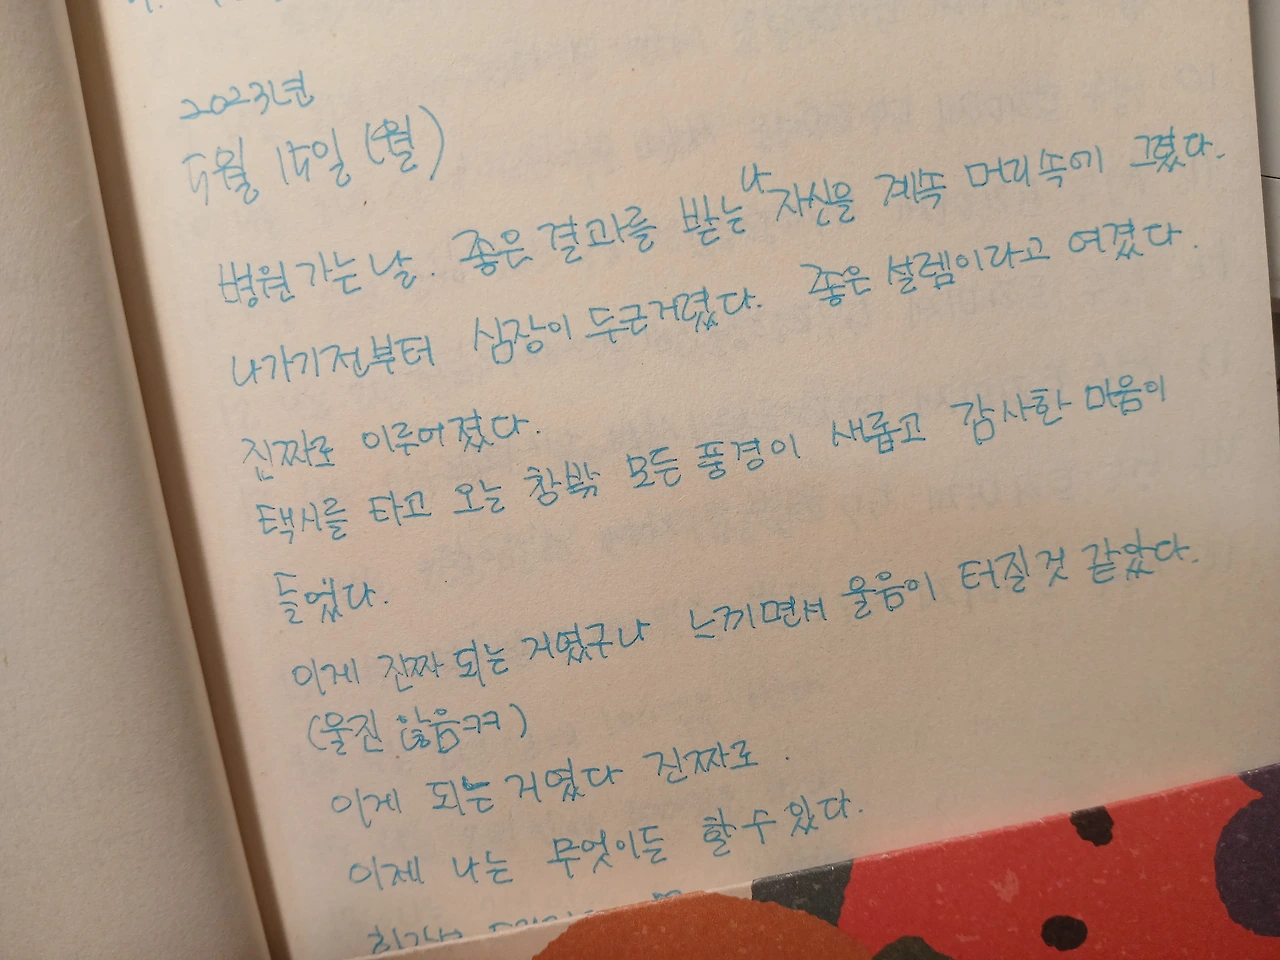 2023년
5월 15일 (월)
병원 가는 날. 좋은 결과를 받는 나 자신을 계속 머리속에 그렸다.
나가기전부터 심장이 두근거렸다. 좋은 설렘이라고 여겼다.
진짜로 이루어졌다.
택시를 타고 오는 창밖 모든 풍경이 새롭고 감사한 마음이
들었다.
이게 진짜 되는 거였구나 느끼면서 울음이 터질것 같았다.
(울진 않음ㅋㅋ)
이게 되는거였다 진짜로.
이제 나는 무엇이든 할수있다.